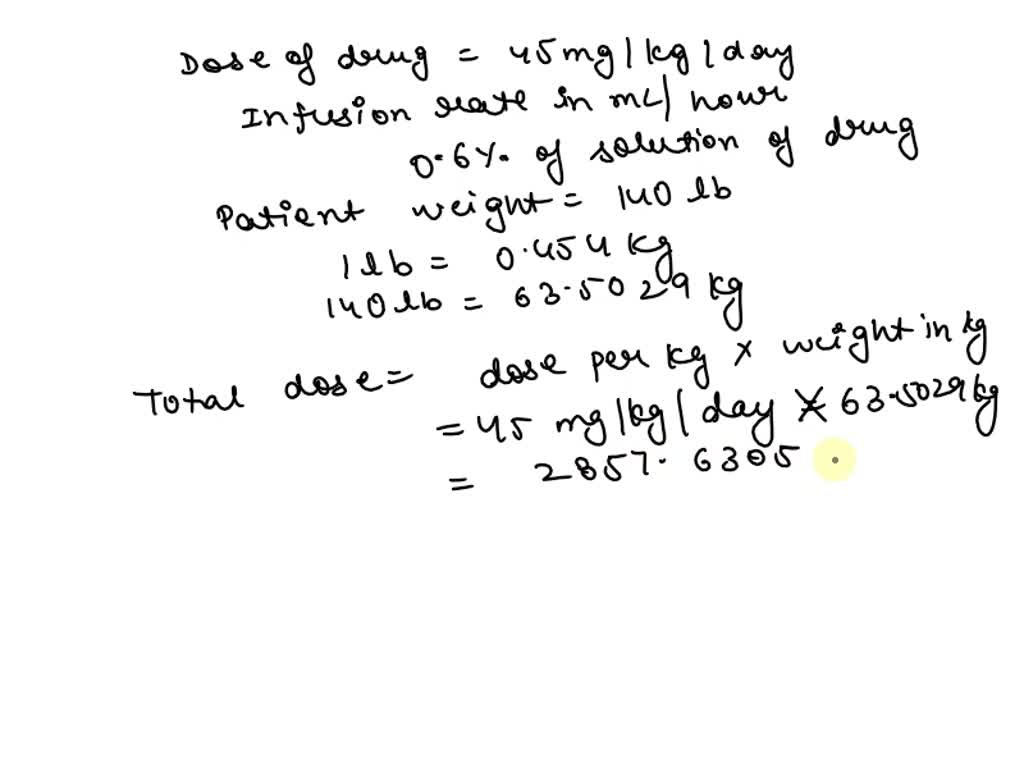 Dose of drug = 45 mg/kg/day
Infusion rate in mL/hour
0.6%. of solution of drug
Patient weight = 140 lb
1 lb = 0.454 kg
140 lb = 63.5029 kg
Total dose = dose per kg x weight in kg
= 45 mg/kg/day x 63.5029 kg
= 2857.6305